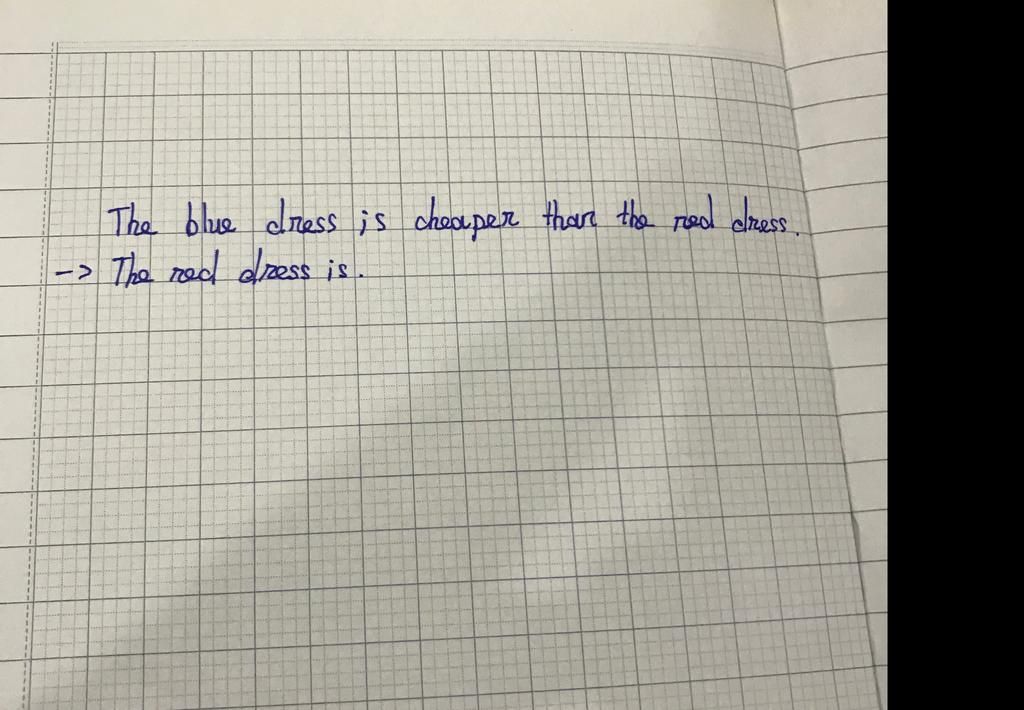 The blue dress is cheaper than the red dress.
-> The red dress is.